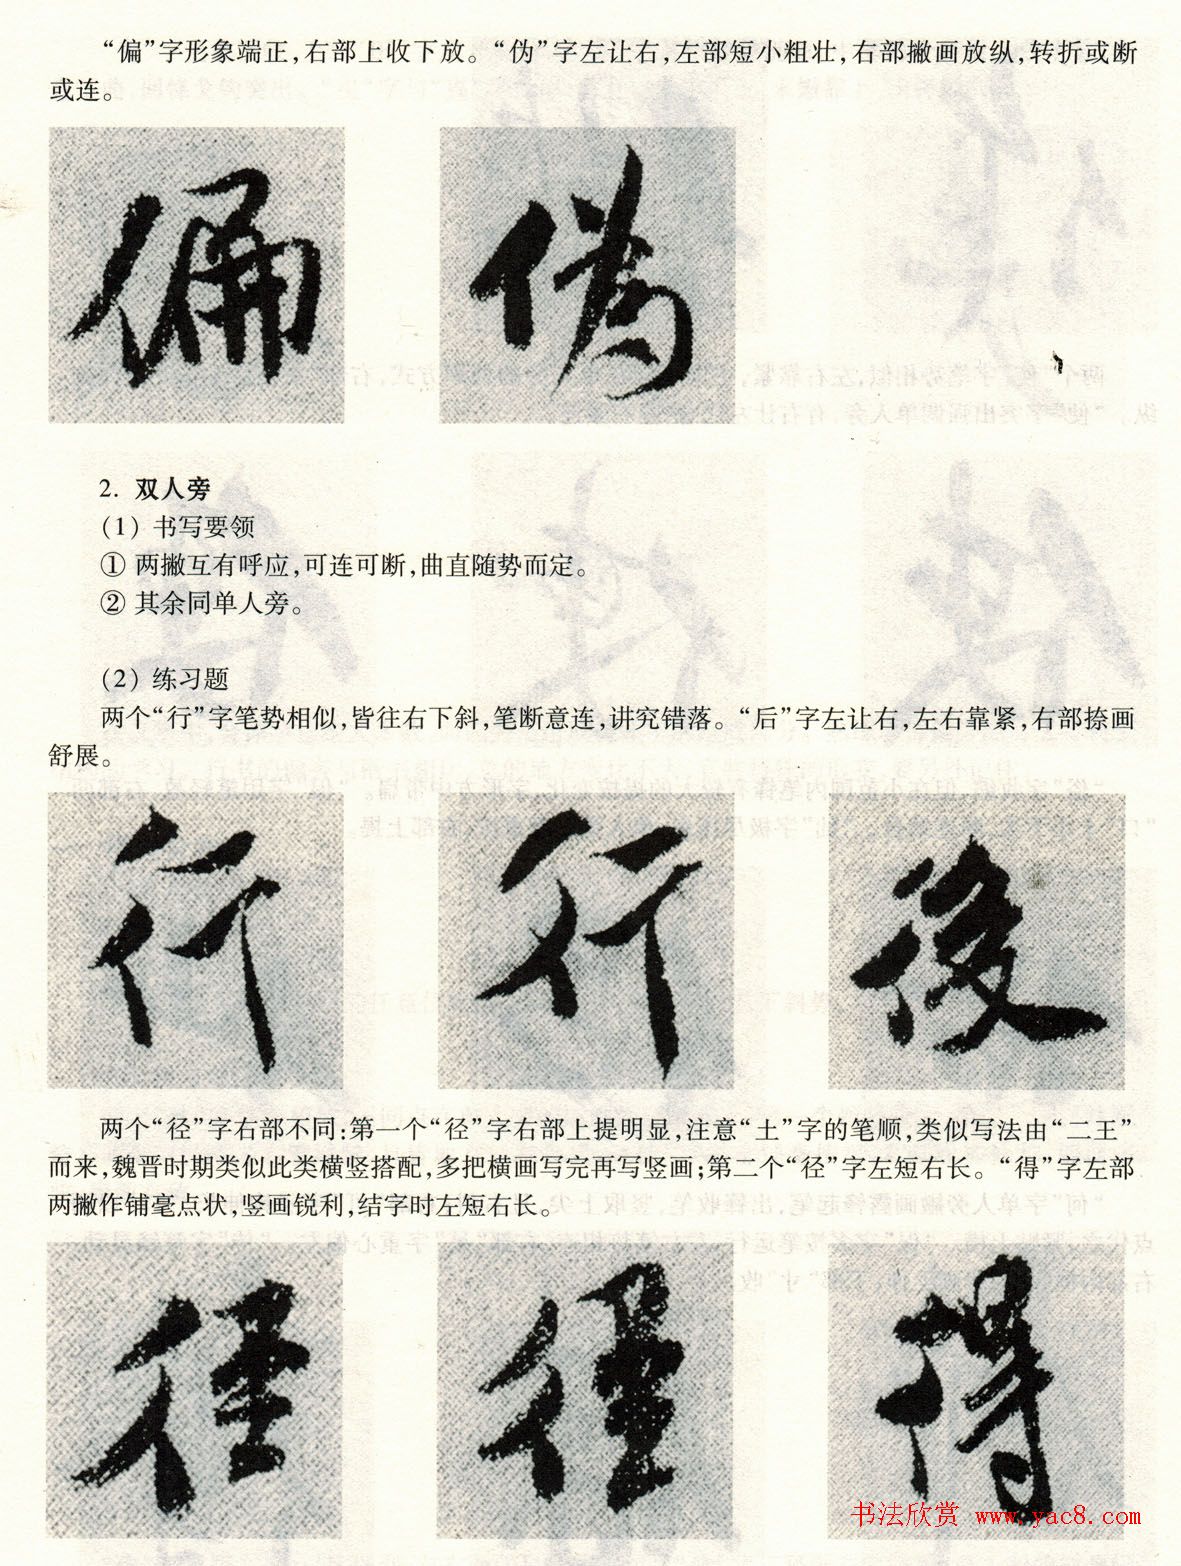 “偏”字形象端正，右部上收下放。“伪”字左让右，左部短小粗壮，右部撇画放纵，转折或断
或连。
偏 伪
2. 双人旁
（1）书写要领
① 两撇互有呼应，可连可断，曲直随势而定。
② 其余同单人旁。
（2）练习题
两个“行”字笔势相似，皆往右下斜，笔断意连，讲究错落。“后”字左让右，左右靠紧，右部捺画
舒展。
行 行 後
两个“径”字右部不同：第一个“径”字右部上提明显，注意“土”字的笔顺，类似写法由“二王”
而来，魏晋时期类似此类横竖搭配，多把横画写完再写竖画；第二个“径”字左短右长。“得”字左部
两撇作铺毫点状，竖画锐利，结字时左短右长。
径 径 得
书法欣赏 www.yac8.com